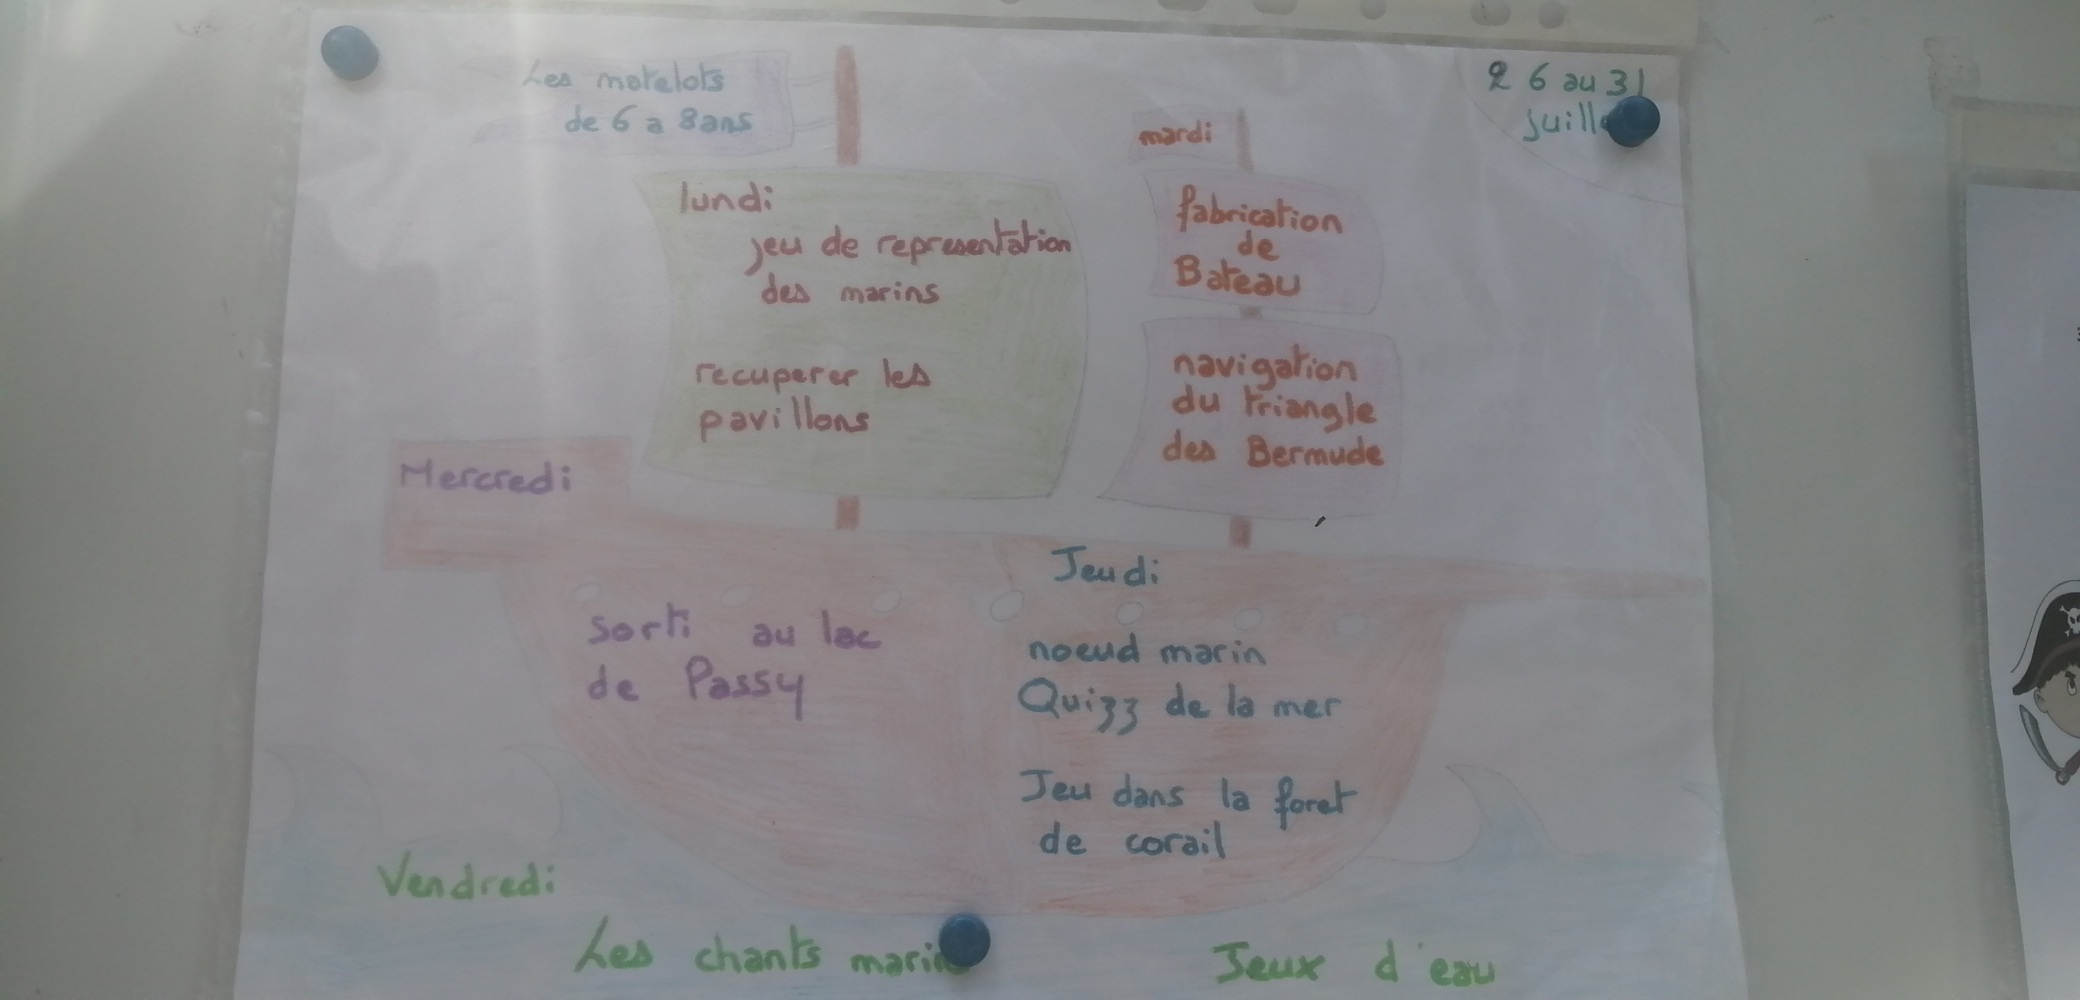 Les matelots
de 6 a 8ans
26 au 31
lundi
jeu de representation
des marins
recuperer les
pavillons
mardi
fabrication
de
Bateau
navigation
du triangle
des Bermude
Mercredi
sorti au lac
de Passy
Jeudi
noeud marin
Quizz de la mer
Jeu dans la foret
de corail
Vendredi
Les chants
Jeux d'eau